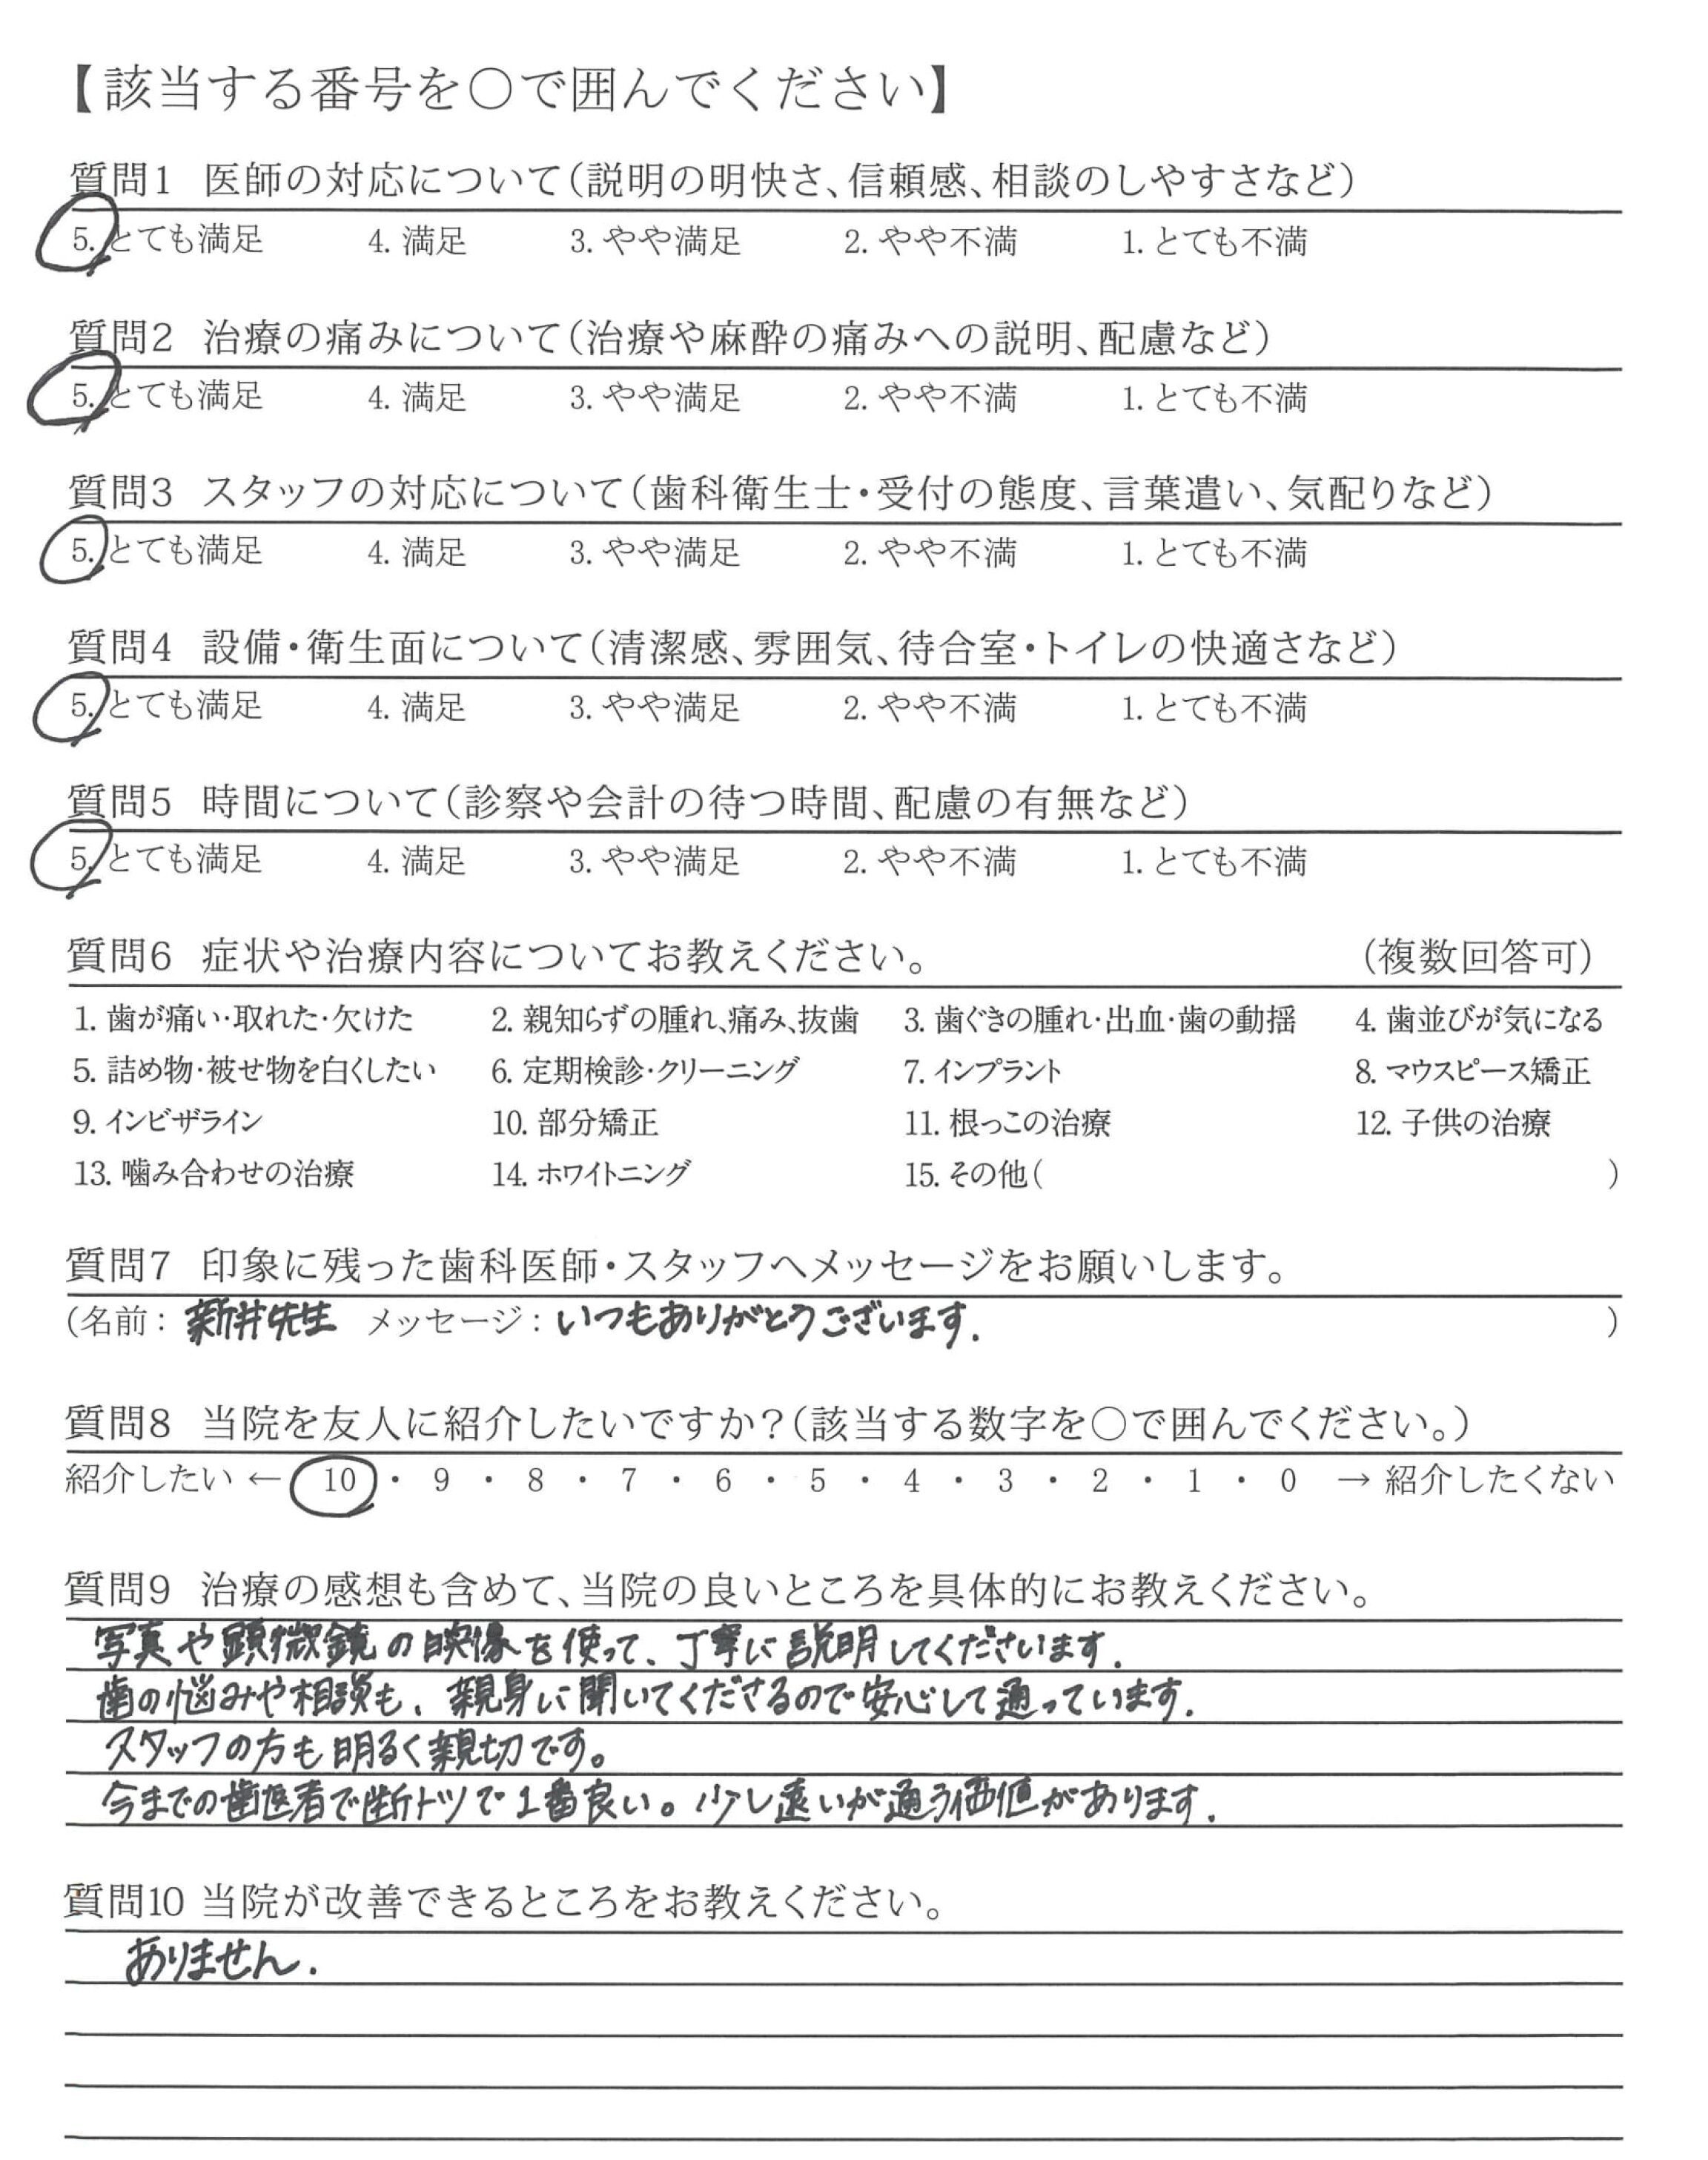 【該当する番号を○で囲んでください】
質問1 医師の対応について(説明の明快さ、信頼感、相談のしやすさなど)
5. とても満足 4. 満足 3. やや満足 2. やや不満 1. とても不満
質問2 治療の痛みについて(治療や麻酔の痛みへの説明、配慮など)
5. とても満足 4. 満足 3. やや満足 2. やや不満 1. とても不満
質問3 スタッフの対応について(歯科衛生士・受付の態度、言葉遣い、気配りなど)
5. とても満足 4. 満足 3. やや満足 2. やや不満 1. とても不満
質問4 設備・衛生面について(清潔感、雰囲気、待合室・トイレの快適さなど)
5. とても満足 4. 満足 3. やや満足 2. やや不満 1. とても不満
質問5 時間について(診察や会計の待つ時間、配慮の有無など)
5. とても満足 4. 満足 3. やや満足 2. やや不満 1. とても不満
質問6 症状や治療内容についてお教えください。 (複数回答可)
1. 歯が痛い・取れた・欠けた 2. 親知らずの腫れ、痛み、抜歯 3. 歯ぐきの腫れ・出血・歯の動揺 4. 歯並びが気になる
5. 詰め物・被せ物を白くしたい 6. 定期検診・クリーニング 7. インプラント 8. マウスピース矯正
9. インビザライン 10. 部分矯正 11. 根っこの治療 12. 子供の治療
13. 噛み合わせの治療 14. ホワイトニング 15. その他( )
質問7 印象に残った歯科医師・スタッフへメッセージをお願いします。
(名前: 新井先生 メッセージ: いつもありがとうございます. )
質問8 当院を友人に紹介したいですか?(該当する数字を○で囲んでください。)
紹介したい ← 10 ・ 9 ・ 8 ・ 7 ・ 6 ・ 5 ・ 4 ・ 3 ・ 2 ・ 1 ・ 0 → 紹介したくない
質問9 治療の感想も含めて、当院の良いところを具体的にお教えください。
写真や顕微鏡の映像を使って、丁寧に説明してくださいます.
歯の悩みや相談も、親身に聞いてくださるので安心して通っています.
スタッフの方も明るく親切です。
今までの歯医者で断トツで1番良い。少し遠いが通う価値があります.
質問10 当院が改善できるところをお教えください。
ありません.